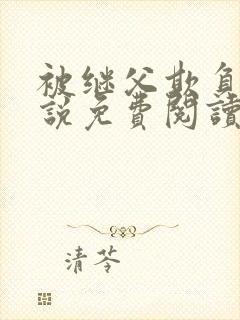 被继父欺负
說免費閱讀
清苓